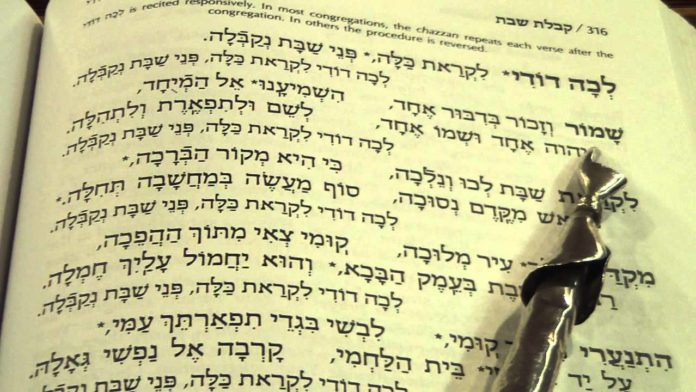 316 / קבלת שבת
לְכָה דוֹדִי is recited responsively. In most congregations, the chazzan repeats each verse after the
congregation. In others the procedure is reversed.
לְכָה דוֹדִי* לִקְרַאת כַּלָּה,* פְּנֵי שַׁבָּת נְקַבְּלָה.
לְכָה דוֹדִי לִקְרַאת כַּלָּה, פְּנֵי שַׁבָּת נְקַבְּלָה.
שָׁמוֹר וְזָכוֹר בְּדִבּוּר אֶחָד, הִשְׁמִיעָנוּ* אֵל הַמְּיֻחָד,
יהוה אֶחָד וּשְׁמוֹ אֶחָד, לְשֵׁם וּלְתִפְאֶרֶת וְלִתְהִלָּה.
לְכָה דוֹדִי לִקְרַאת כַּלָּה, פְּנֵי שַׁבָּת נְקַבְּלָה.
שַׁבָּת לְכוּ וְנֵלְכָה, כִּי הִיא מְקוֹר הַבְּרָכָה,*
מִקֶּדֶם נְסוּכָה, סוֹף מַעֲשֶׂה בְּמַחֲשָׁבָה תְּחִלָּה.*
לְכָה דוֹדִי לִקְרַאת כַּלָּה, פְּנֵי שַׁבָּת נְקַבְּלָה.
עִיר מְלוּכָה, קוּמִי צְאִי מִתּוֹךְ הַהֲפֵכָה,
בְּעֵמֶק הַבָּכָא,* וְהוּא יַחֲמוֹל עָלַיִךְ חֶמְלָה.
לְכָה דוֹדִי לִקְרַאת כַּלָּה, פְּנֵי שַׁבָּת נְקַבְּלָה.
הִתְנַעֲרִי קוּמִי, לִבְשִׁי בִּגְדֵי תִפְאַרְתֵּךְ עַמִּי,*
עַל יַד בֵּית הַלַּחְמִי, קָרְבָה אֶל נַפְשִׁי גְאָלָהּ.
לְכָה דוֹדִי לִקְרַאת כַּלָּה, פְּנֵי שַׁבָּת נְקַבְּלָה.